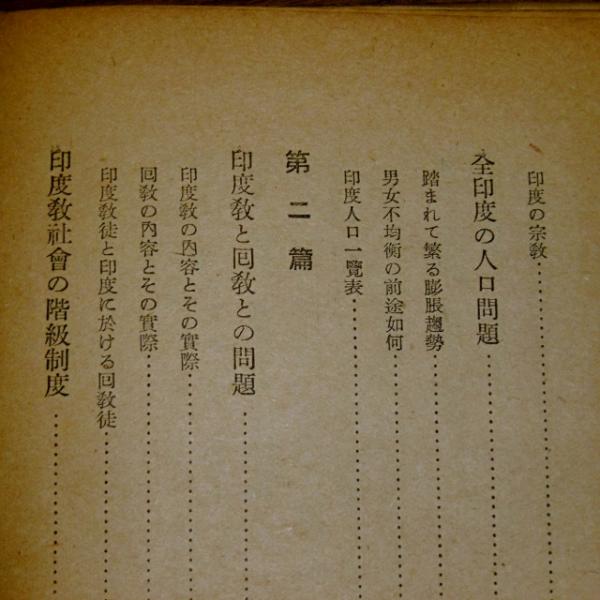 印度の宗敎
全印度の人口問題
踏まれて繁る膨脹趨勢
男女不均衡の前途如何
印度人口一覽表
第二篇
印度敎と回敎との問題
印度敎の內容とその實際
回敎の內容とその實際
印度敎徒と印度に於ける回敎徒
印度敎社會の階級制度